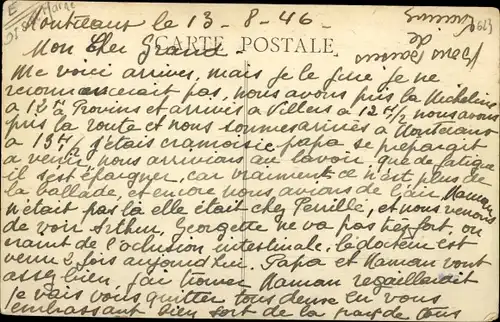 Montceaux le 13-8-46
Mon Cher Grand
CARTE POSTALE
Me voici arriver, mais je le jure je ne
recommencerait pas, nous avons pris la Micheline
à 12H à Provins et arrivés à Villers à 12H1/2 nous avons
pris la route et nous sommes arrivés à Montceaux
à 13H1/2 j'étais cramoisie papa se préparait
a venir, nous arrivions au lavoir que de fatigue
il s'est épargner, car vraiment ce n'est plus de
la ballade, et encore nous avions de l'air Maman
n'était pas la elle était chez Penillé, et nous venons
de voir Arthur, Georgette ne va pas très fort, on
craint de l'oclusion intestinale, le docteur est
venu 2 fois aujourd'hui. Papa et Maman vont
assez bien, j'ai trouver Maman regaillardit
Je vais vous quitter tous deux en vous
embrassant bien fort de la part de tous